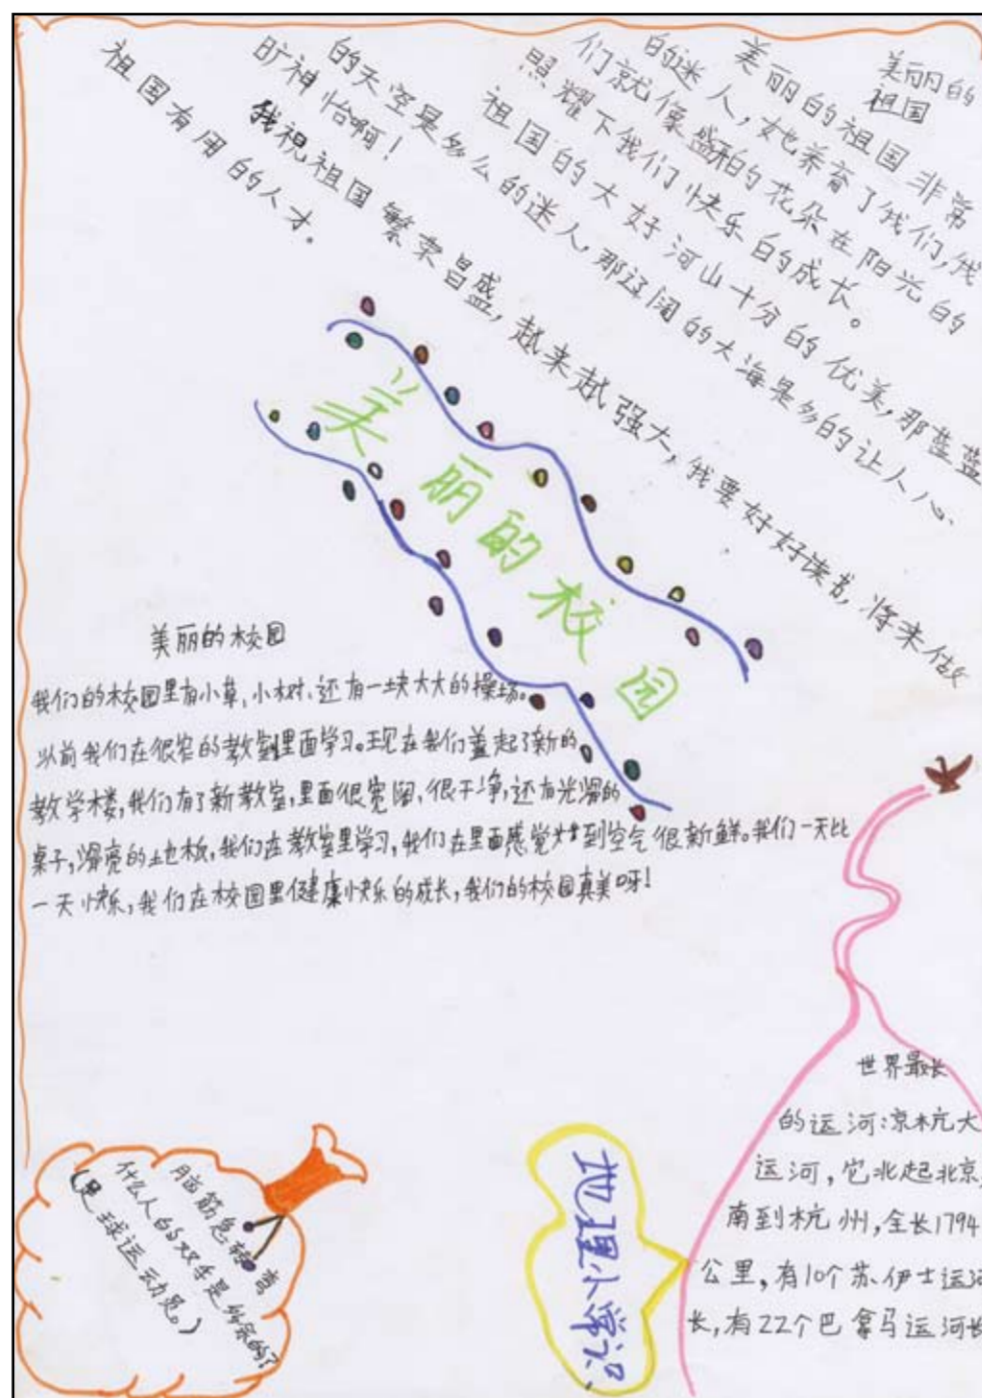 美丽的
祖国
美丽的祖国非常
的迷人,她养育了我们,我
们就像盛开的花朵在阳光的
照耀下我们快乐的成长。
祖国的大好河山十分的优美,那蓝蓝
的天空是多么的迷人,那辽阔的大海是多的让人心
旷神怡啊!
我祝祖国繁荣昌盛,越来越强大,我要好好读书,将来做
祖国有用的人才。
美丽的校园
美丽的校园
我们的校园里有小草、小树、还有一块大大的操场。
以前我们在很窄的教室里面学习。现在我们盖起了新的
教学楼,我们有了新教室,里面很宽阔、很干净,还有光滑的
桌子,滑亮的地板,我们在教室里学习,我们在里面感觉到空气很新鲜。我们一天比
一天快乐,我们在校园里健康快乐的成长,我们的校园真美呀!
世界最长
的运河:京杭大
运河,它北起北京,
南到杭州,全长1794
公里,有10个苏伊士运河
长,有22个巴拿马运河长
地理小常识
脑筋急转弯
什么人的双手是多余的?
(足球运动员。)